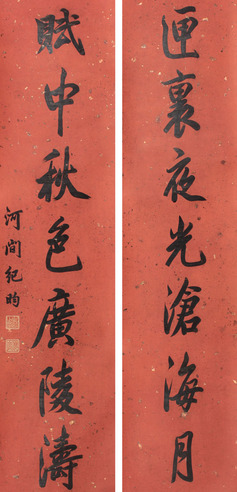 匣裏夜光滄海月
賦中秋色廣陵濤
河間紀昀